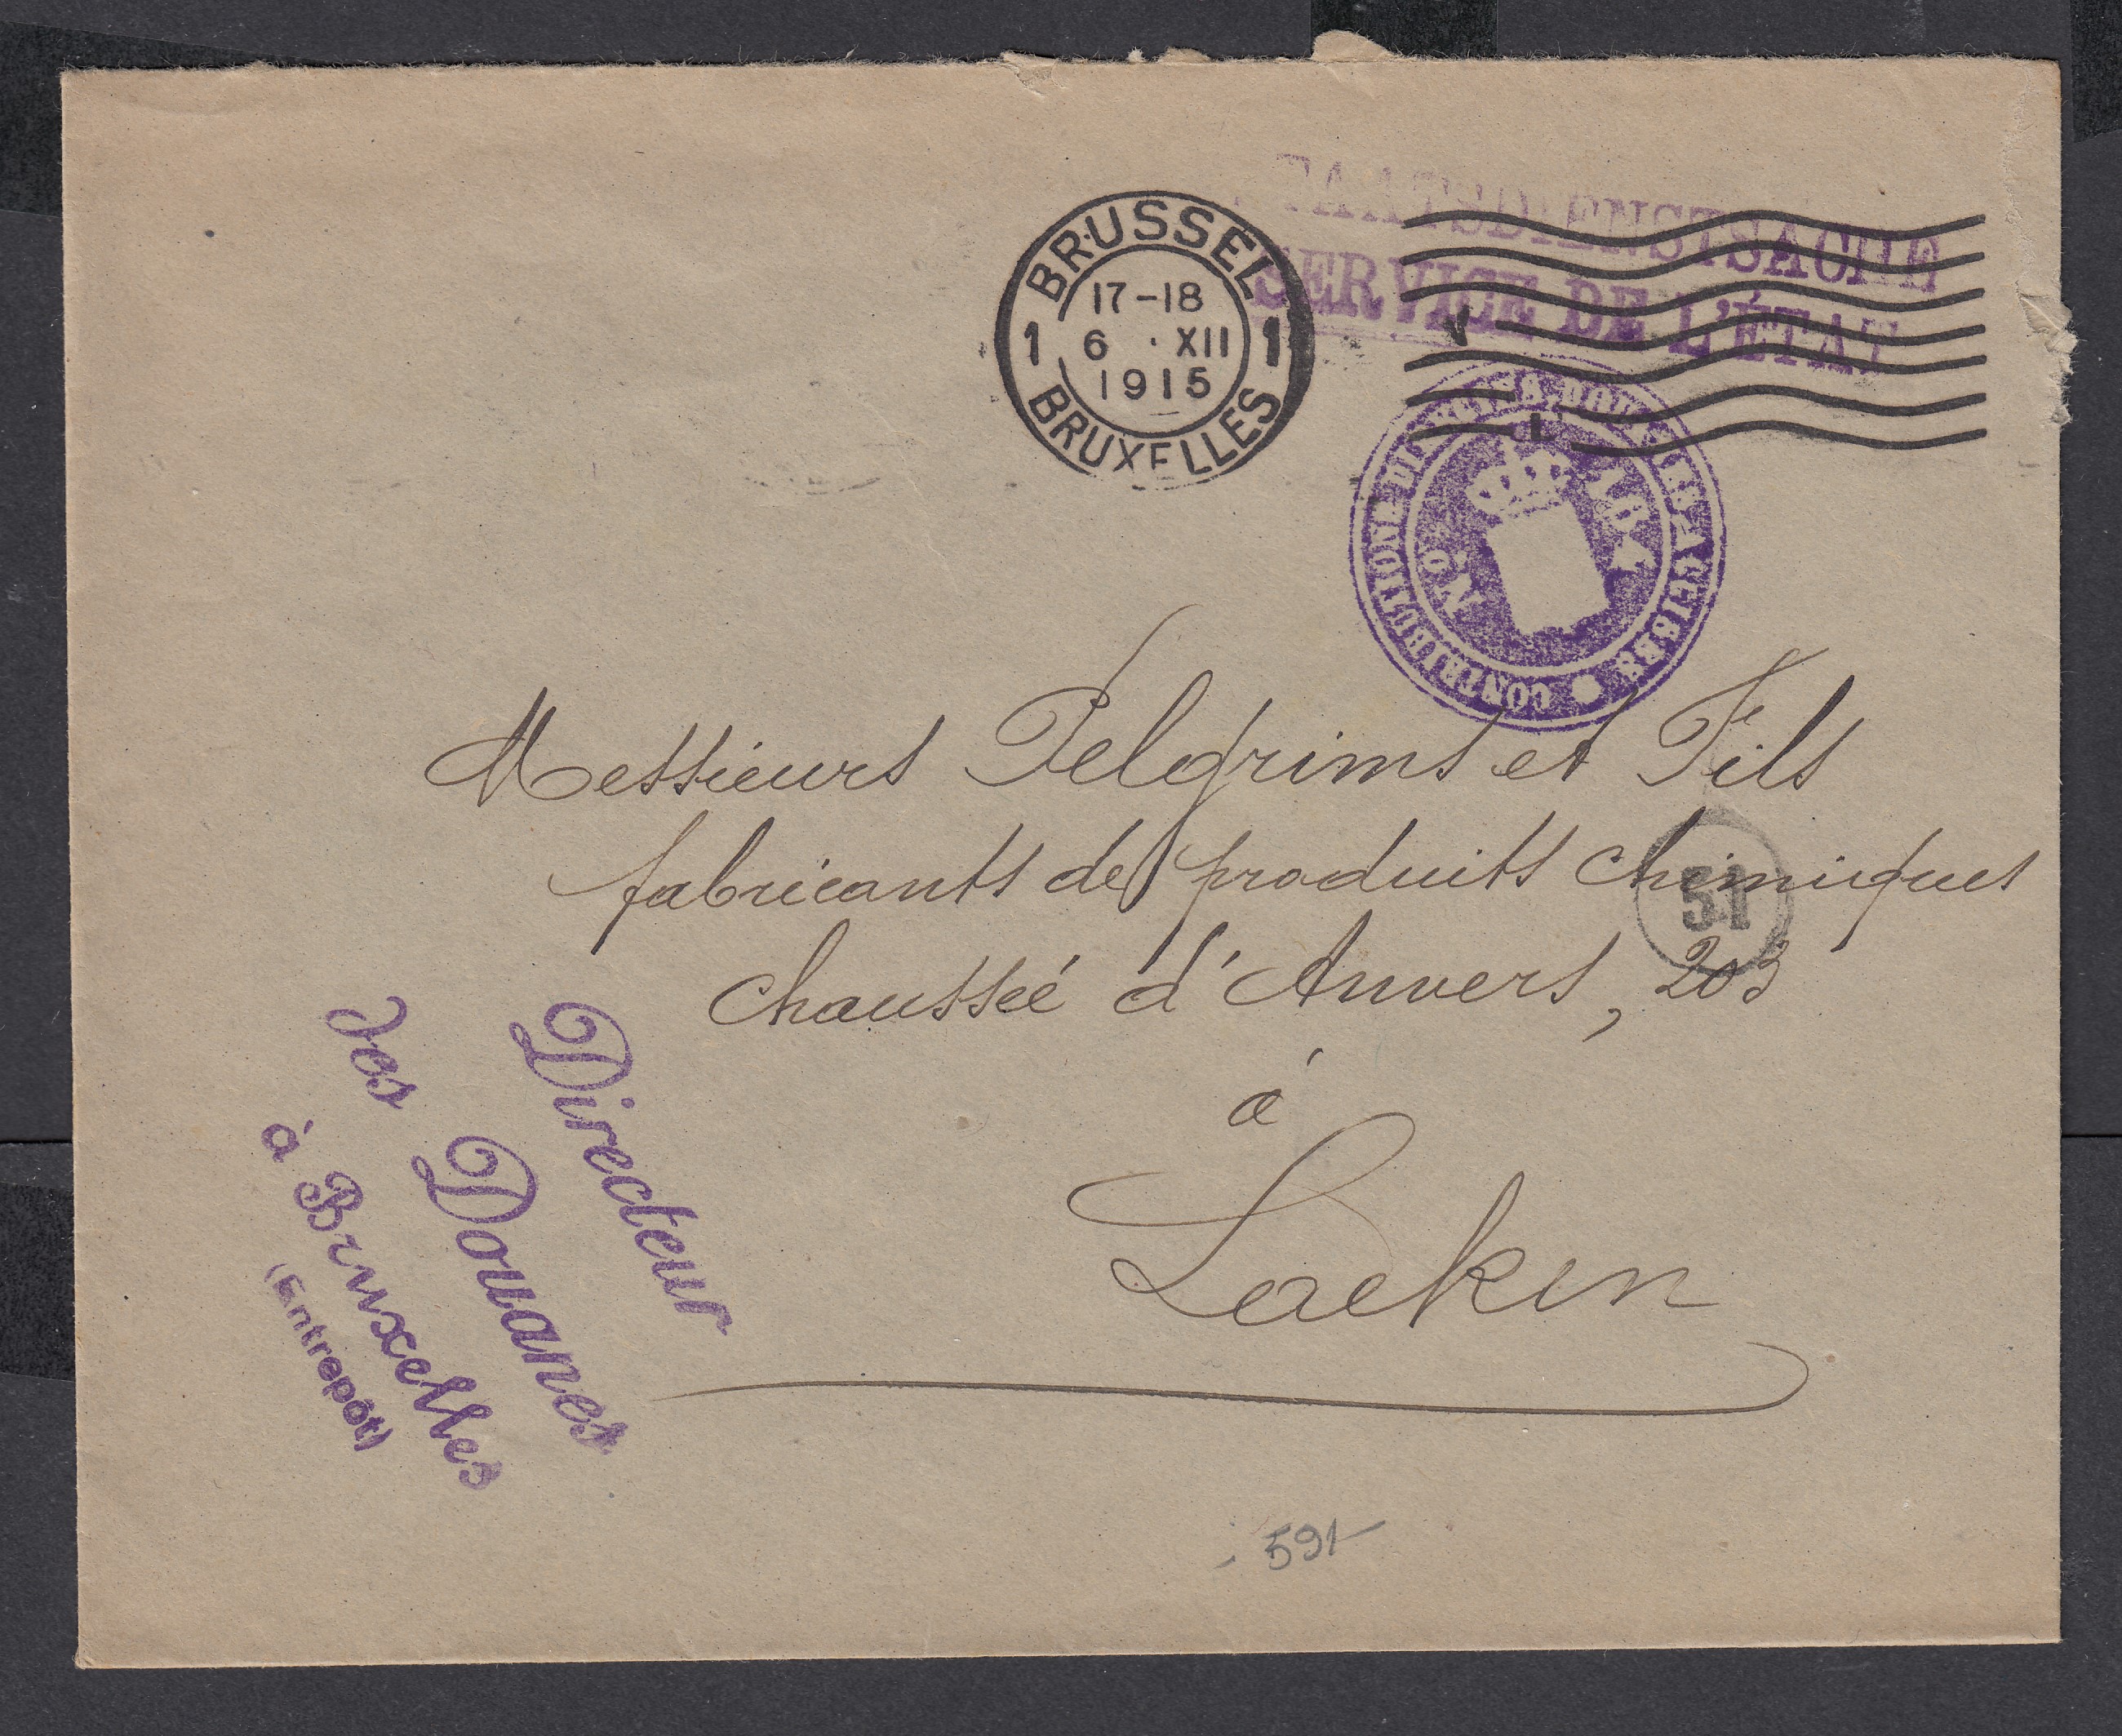 STAATSDIENSTSACHE
SERVICE DE L'ÉTAT
BRUSSEL
17-18
1 6 · XII 1
1915
BRUXELLES
CONTRIBUTIONS DIRECTES, DOUANES & ACCISES
No
Messieurs Pelgrims et Fils
fabricants de produits chimiques
51
chaussée d'Anvers, 203
à
Laeken
Directeur
des Douanes
à Bruxelles
(Entrepôt)
591